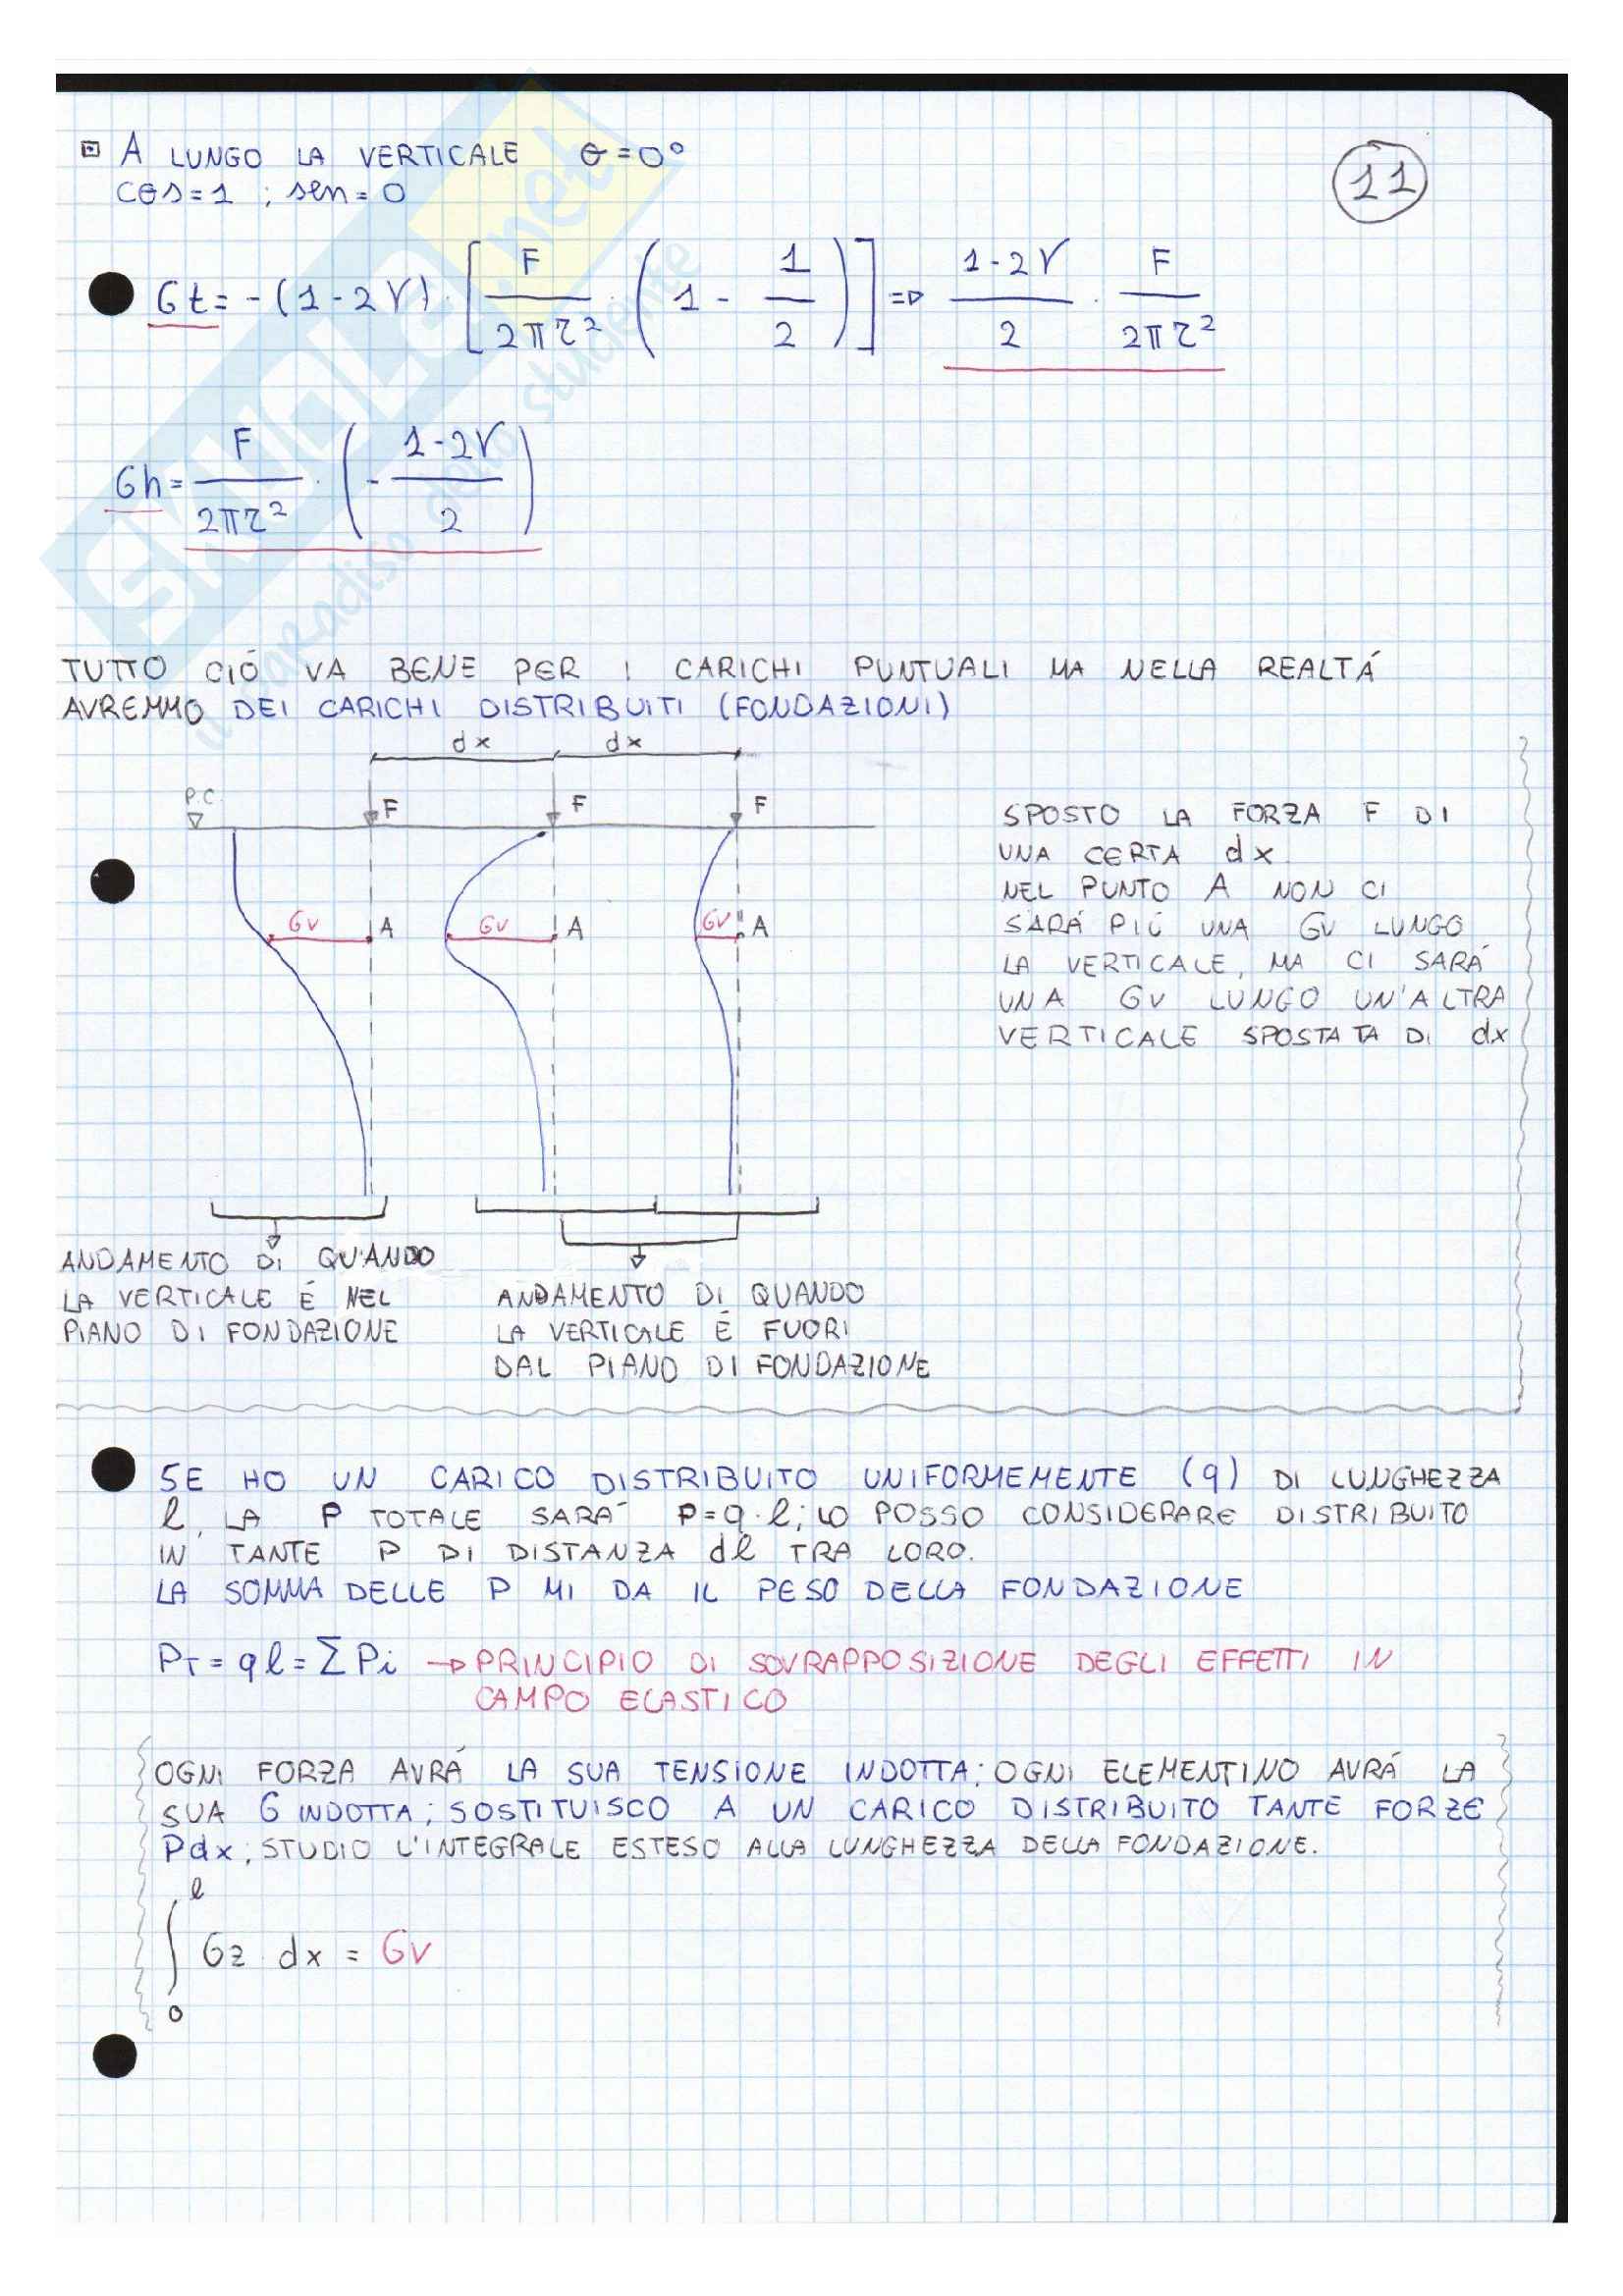 A LUNGO LA VERTICALE θ=0°
cos=1 ; sen=0
11
σt = -(1-2ν) · [F/2πr² · (1 - 1/2)] ⇒ 1-2ν/2 · F/2πr²
σh = F/2πr² · (- 1-2ν/2)
TUTTO CIÓ VA BENE PER I CARICHI PUNTUALI MA NELLA REALTÁ
AVREMMO DEI CARICHI DISTRIBUITI (FONDAZIONI)
dx dx
P.C.
F F F
σv A σv A σv A
SPOSTO LA FORZA F DI
UNA CERTA dx.
NEL PUNTO A NON CI
SARÁ PIÚ UNA σv LUNGO
LA VERTICALE, MA CI SARÁ
UNA σv LUNGO UN'ALTRA
VERTICALE SPOSTATA DI dx
ANDAMENTO DI QUANDO
LA VERTICALE É NEL
PIANO DI FONDAZIONE
ANDAMENTO DI QUANDO
LA VERTICALE É FUORI
DAL PIANO DI FONDAZIONE
SE HO UN CARICO DISTRIBUITO UNIFORMEMENTE (q) DI LUNGHEZZA
l, LA P TOTALE SARÁ P=q·l; LO POSSO CONSIDERARE DISTRIBUITO
IN TANTE P DI DISTANZA dl TRA LORO.
LA SOMMA DELLE P MI DA IL PESO DELLA FONDAZIONE
PT = ql = ΣPi → PRINCIPIO DI SOVRAPPOSIZIONE DEGLI EFFETTI IN
CAMPO ELASTICO
OGNI FORZA AVRÁ LA SUA TENSIONE INDOTTA; OGNI ELEMENTINO AVRÁ LA
SUA σ INDOTTA; SOSTITUISCO A UN CARICO DISTRIBUITO TANTE FORZE
Pdx; STUDIO L'INTEGRALE ESTESO ALLA LUNGHEZZA DELLA FONDAZIONE.
l
∫ σz · dx = σv
0
SKUOLA.net
il paradiso dello studente